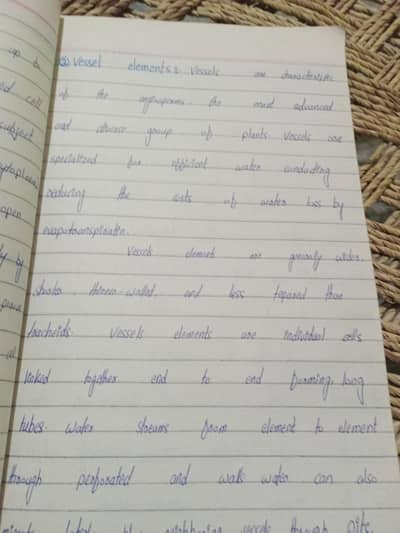 up to
⑥ Vessel elements: Vessels are characteristic
cell
of the angiosperms, the most advanced
subject
and diverse group of plants. Vessels are
specialized for efficient water conducting
open
reducing the costs of water loss by
evapotranspiration.
by
Vessels elements are generally wider,
shorter, thinner-walled, and less tapered than
tracheids. Vessels elements are individual cells
linked together end to end forming long
tubes. Water streams from element to element
through perforated end walls water can also
migrate neighboring vessels through pits.